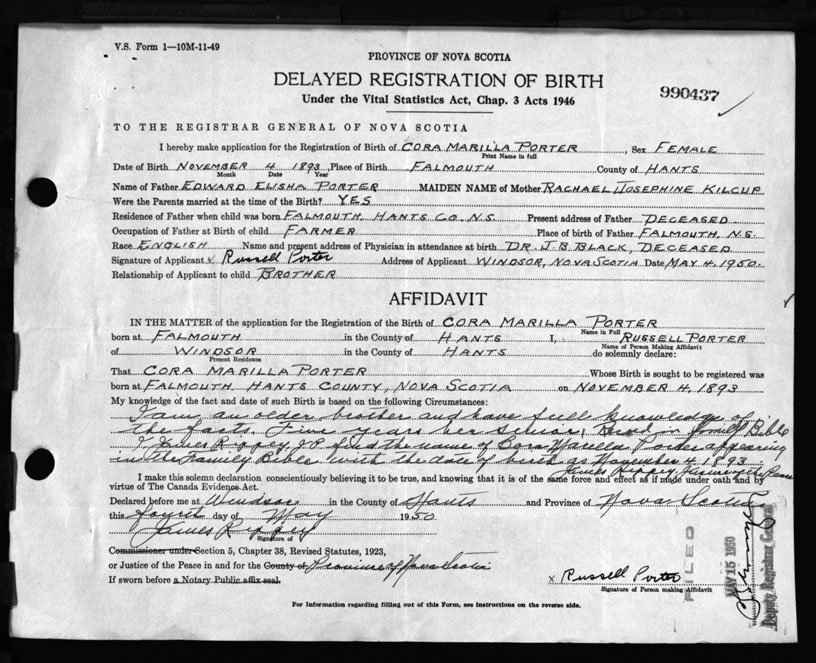 V.S. Form 1—10M-11-49
PROVINCE OF NOVA SCOTIA
DELAYED REGISTRATION OF BIRTH
990437
Under the Vital Statistics Act, Chap. 3 Acts 1946
TO THE REGISTRAR GENERAL OF NOVA SCOTIA
I hereby make application for the Registration of Birth of CORA MARILLA PORTER, Sex FEMALE
Print Name in full
Date of Birth NOVEMBER 4 1893, Place of Birth FALMOUTH County of HANTS
Month Date Year
Name of Father EDWARD ELISHA PORTER MAIDEN NAME of Mother RACHAEL JOSEPHINE KILCUP
Were the Parents married at the time of the Birth? YES
Residence of Father when child was born FALMOUTH, HANTS CO. N.S. Present address of Father DECEASED.
Occupation of Father at Birth of child FARMER Place of birth of Father FALMOUTH, N.S.
Race ENGLISH Name and present address of Physician in attendance at birth DR. J. B. BLACK, DECEASED
Signature of Applicant x Russell Porter Address of Applicant WINDSOR, NOVA SCOTIA Date MAY 4, 1950.
Relationship of Applicant to child BROTHER
AFFIDAVIT
IN THE MATTER of the application for the Registration of the Birth of CORA MARILLA PORTER
Name in Full
born at FALMOUTH in the County of HANTS I, RUSSELL PORTER
Name of Person Making Affidavit
of WINDSOR in the County of HANTS do solemnly declare:
Present Residence
That CORA MARILLA PORTER Whose Birth is sought to be registered was
born at FALMOUTH, HANTS COUNTY, NOVA SCOTIA on NOVEMBER 4, 1893
My knowledge of the fact and date of such Birth is based on the following Circumstances:
I am an older brother and have full knowledge of
the facts. Five years her senior, in Family Bible
I James Rippey, J.P. find the name of Cora Marilla Porter appearing
in the Family Bible with the date of birth as November 4 1893
James Rippey
I make this solemn declaration conscientiously believing it to be true, and knowing that it is of the same force and effect as if made under oath and by
virtue of The Canada Evidence Act.
Declared before me at Windsor in the County of Hants and Province of Nova Scotia
this fourth day of May 1950
James Rippey
Signature of
Commissioner under Section 5, Chapter 38, Revised Statutes, 1923,
or Justice of the Peace in and for the County of Province of Nova Scotia
If sworn before a Notary Public affix seal.
x Russell Porter
Signature of Person making Affidavit
For Information regarding filling out of this Form, see instructions on the reverse side.
FILED
MAY 15 1950
Deputy Registrar General